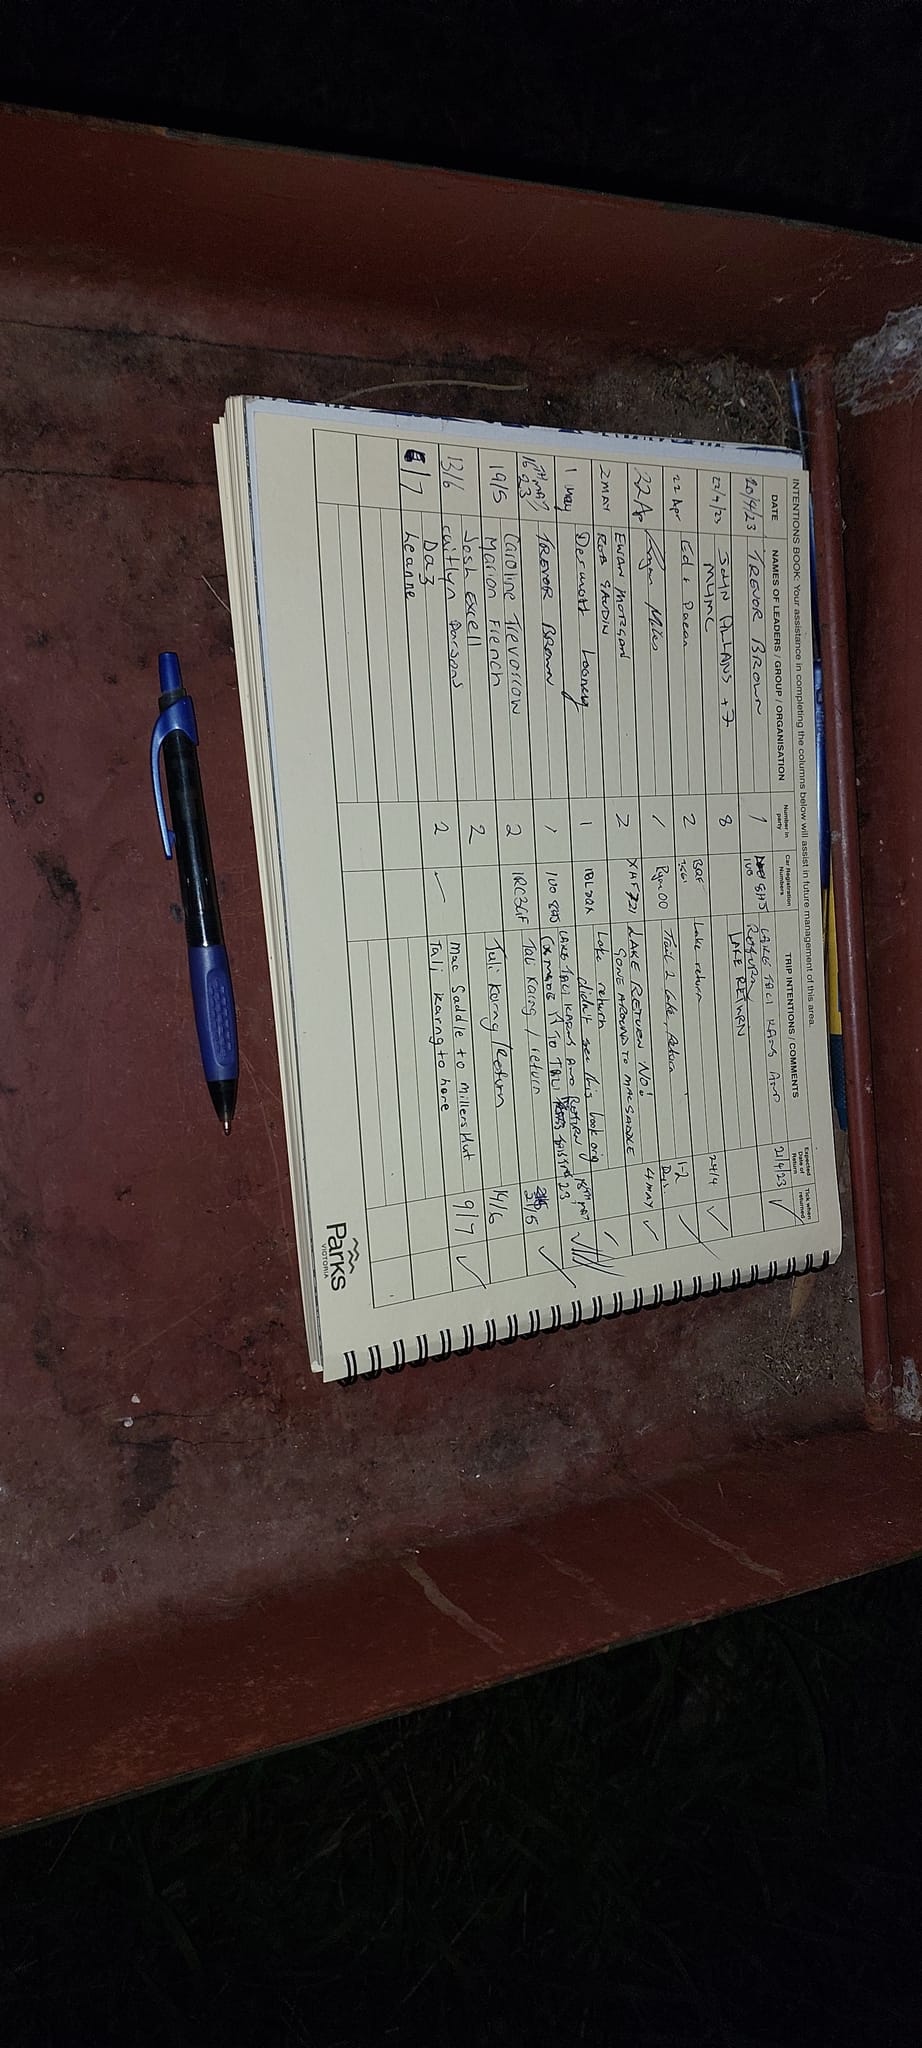 INTENTIONS BOOK: Your assistance in completing the columns below will assist in future management of this area.
DATE NAMES OF LEADERS / GROUP / ORGANISATION Number in party Car Registration Numbers TRIP INTENTIONS / COMMENTS Expected Date of Return Tick when returned
20/4/23 TREVOR BROWN 1 1UO 8HJ LAKE TALI KARNG AND 21/4/23 ✓
RETURN
JOHN +7 8 LAKE RETURN 24/4 ✓
22 Apr Ed + 2 BQF Lake return 1-2 ✓
22 Ap Miles 1 Rym00 Tali 2 Lake, Return
EWAN MORGAN 2 XHF721 LAKE RETURN NO! 4 MAY ✓
2 MAY ROB GAUDIN GONE AROUND TO MACSADDLE
1 May Dermott Looney 1 1BL2QX Lake return
didn't see this book orig
16TH MAY 23 TREVOR BROWN 1 1UO 8HJ LAKE TALI KARNG AND RETURN 18TH MAY 23
TO TALI
19/5 Caroline Trevoscow 2 1RC3GF Tali Karng / return /5 ✓
Marion French
13/6 Josh Excell 2 Tali Karng/Return 14/6
Caitlyn Parsons
/7 Daz 2 ✓ Mac Saddle to Millers Hut 9/7 ✓
Leanne Tali Karng to here
Parks
VICTORIA